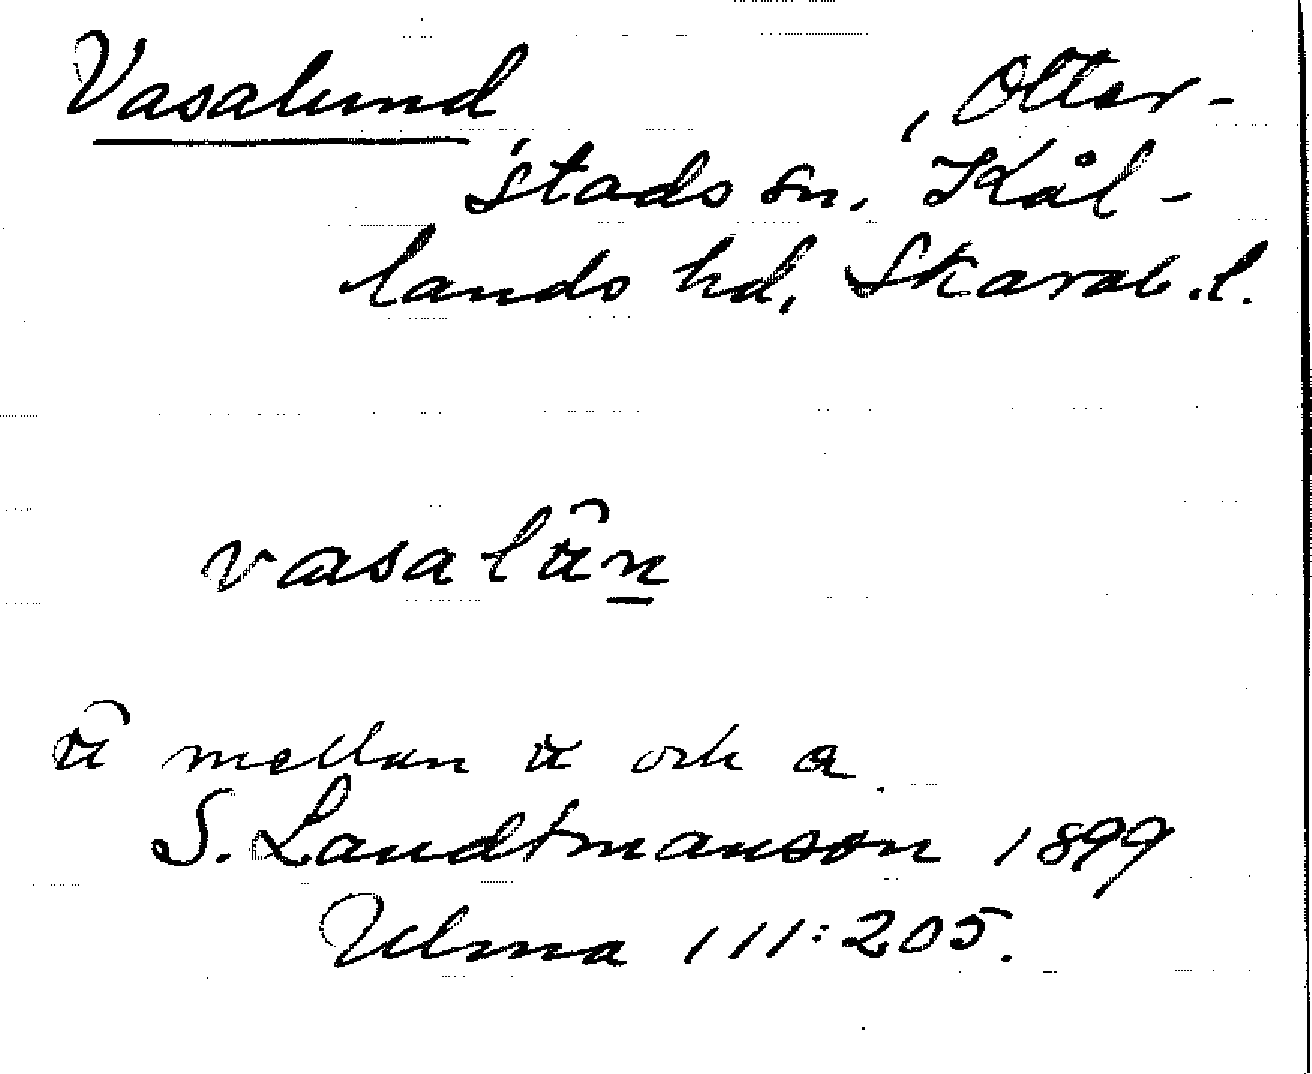 Vasalund , Otter-
stads sn. Kål-
lands hd, Skarab.l.
vasa län
ä mellan ä och a.
S. Landtmanson 1899
Ulma 111:205.